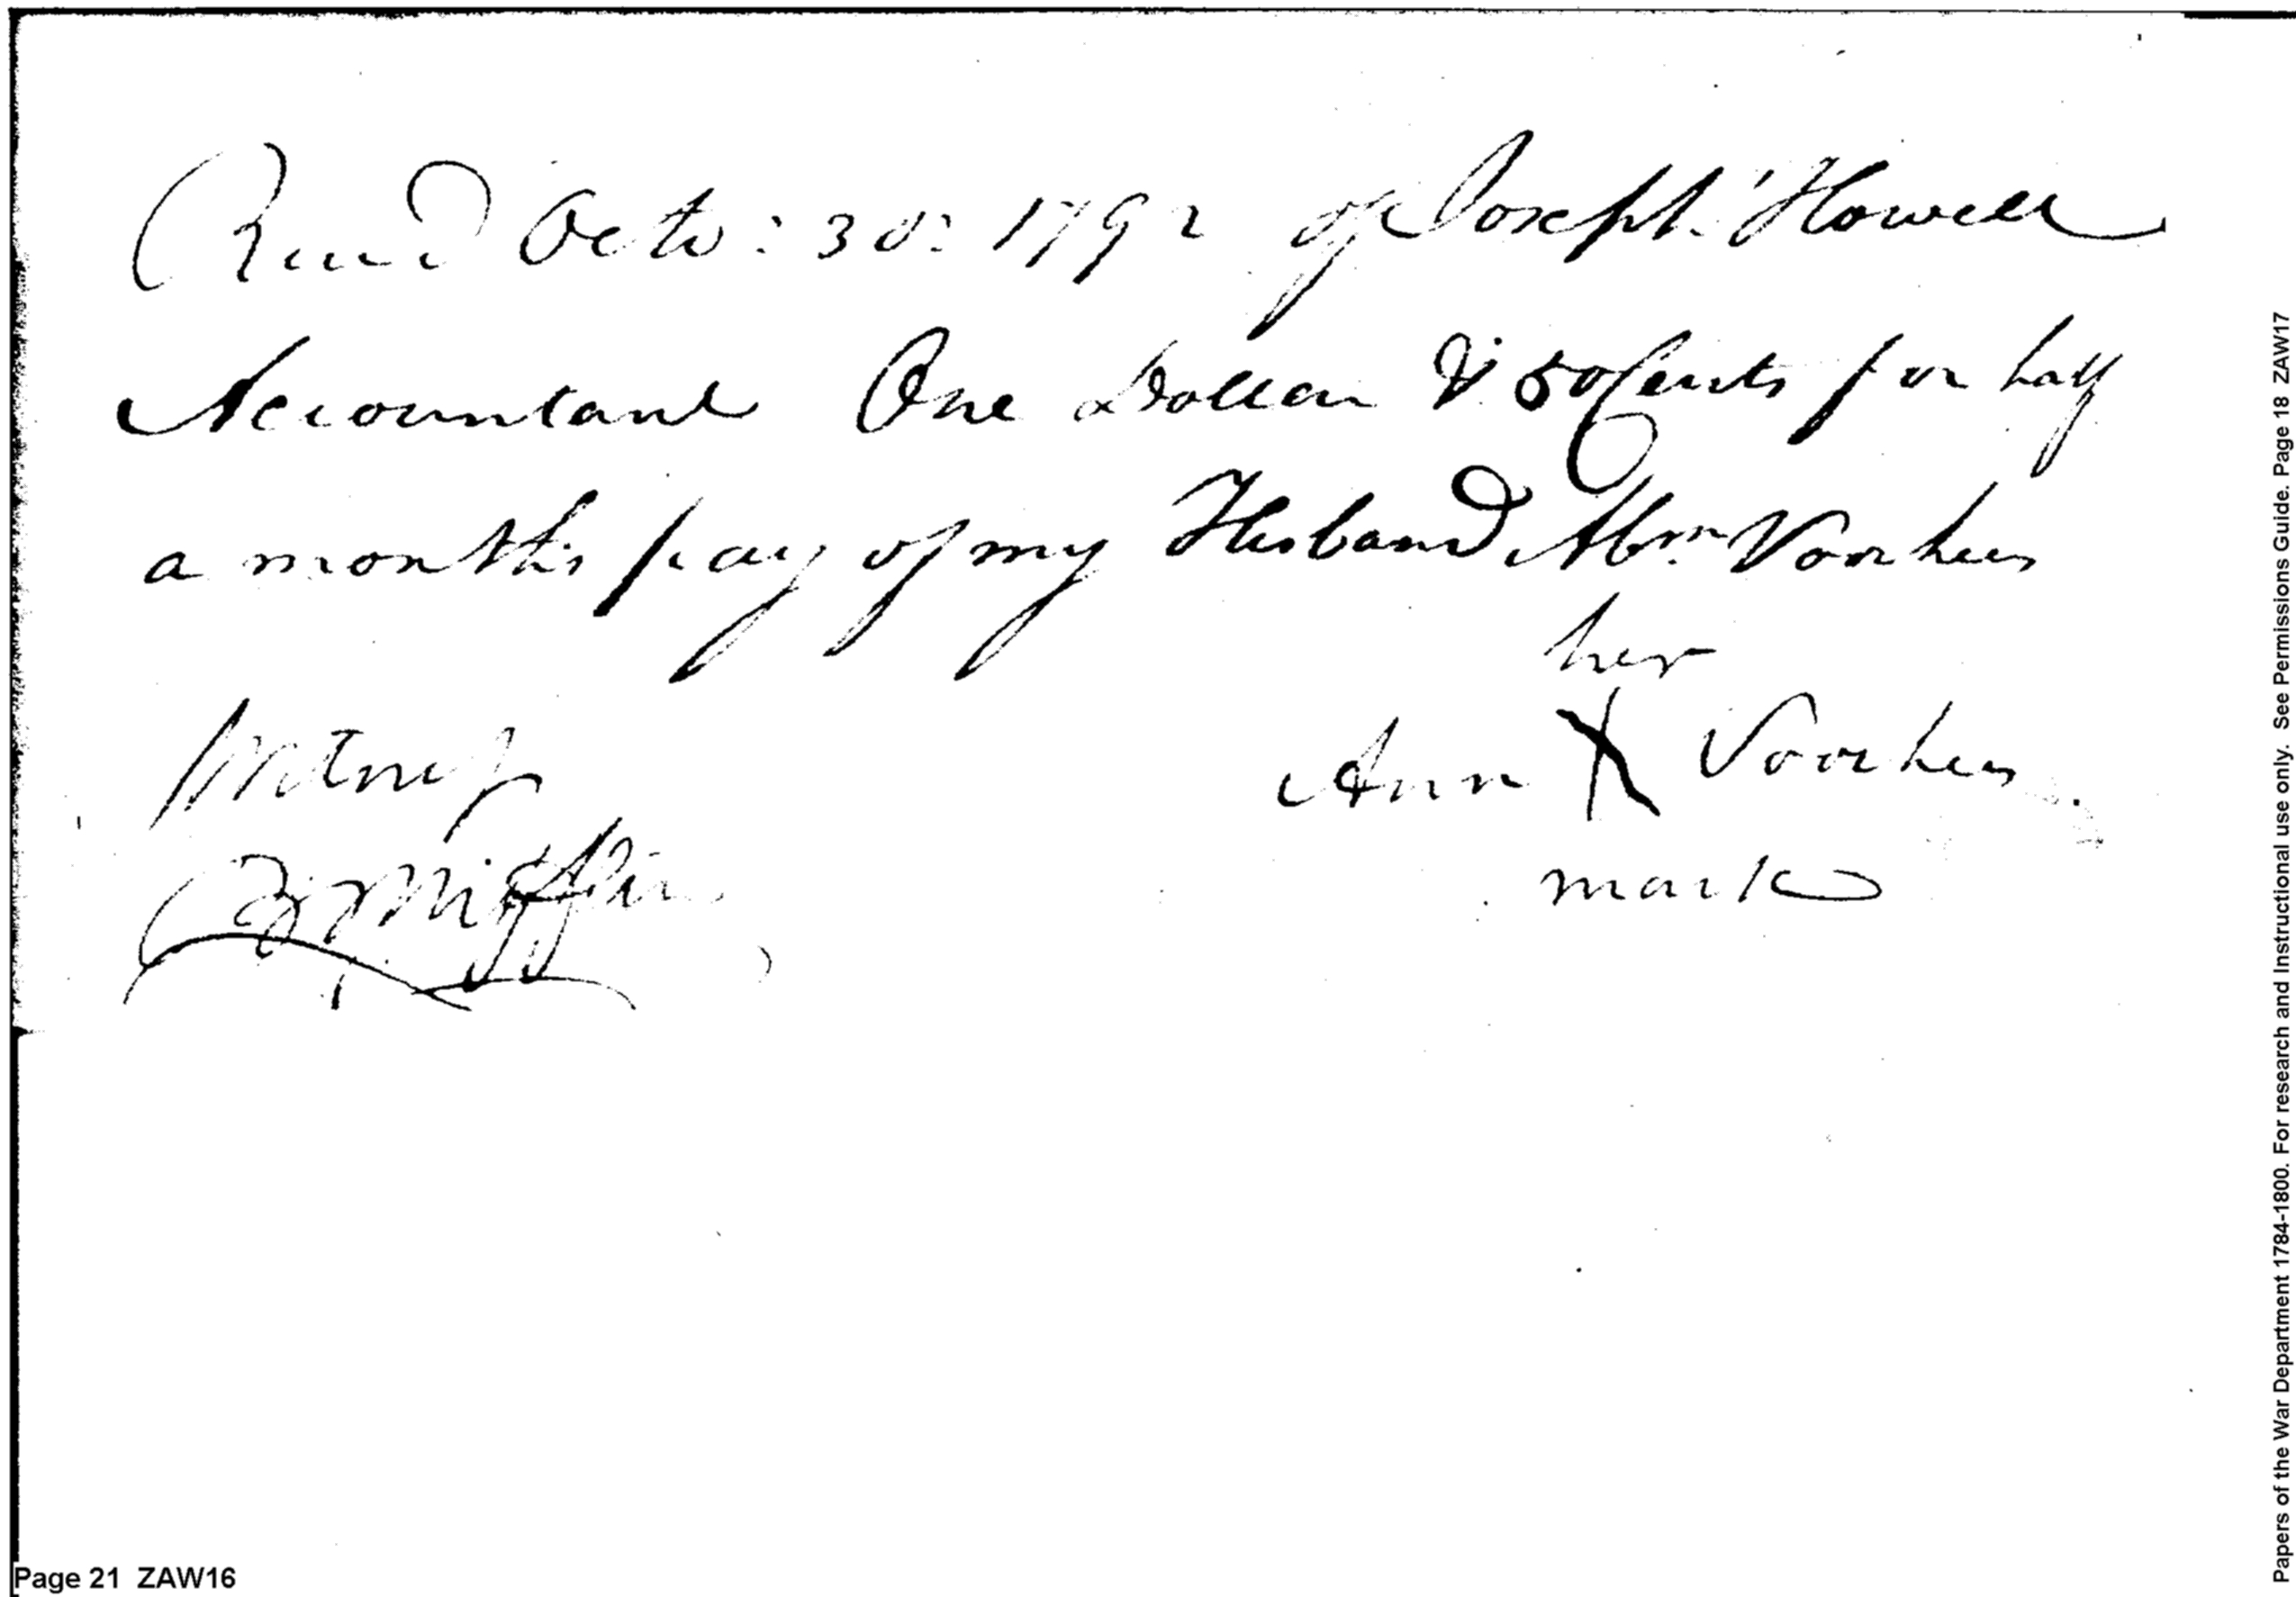 Recd Octo: 30: 1792 of Joseph Howell
Accountant One Dollar & 50 Cents for half
a months pay of my Husband Abm Voorhees
her
Witness Ann X Voorhees
mark
Mifflin
Page 21 ZAW16
Papers of the War Department 1784-1800. For research and Instructional use only. See Permissions Guide. Page 18 ZAW17